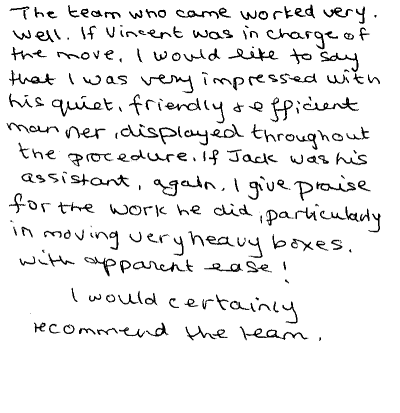 The team who came worked very.
well. If Vincent was in charge of
the move, I would like to say
that I was very impressed with
his quiet, friendly & efficient
manner, displayed throughout
the procedure. If Jack was his
assistant, again, I give praise
for the work he did, particularly
in moving very heavy boxes.
with apparent ease!
I would certainly
recommend the team.